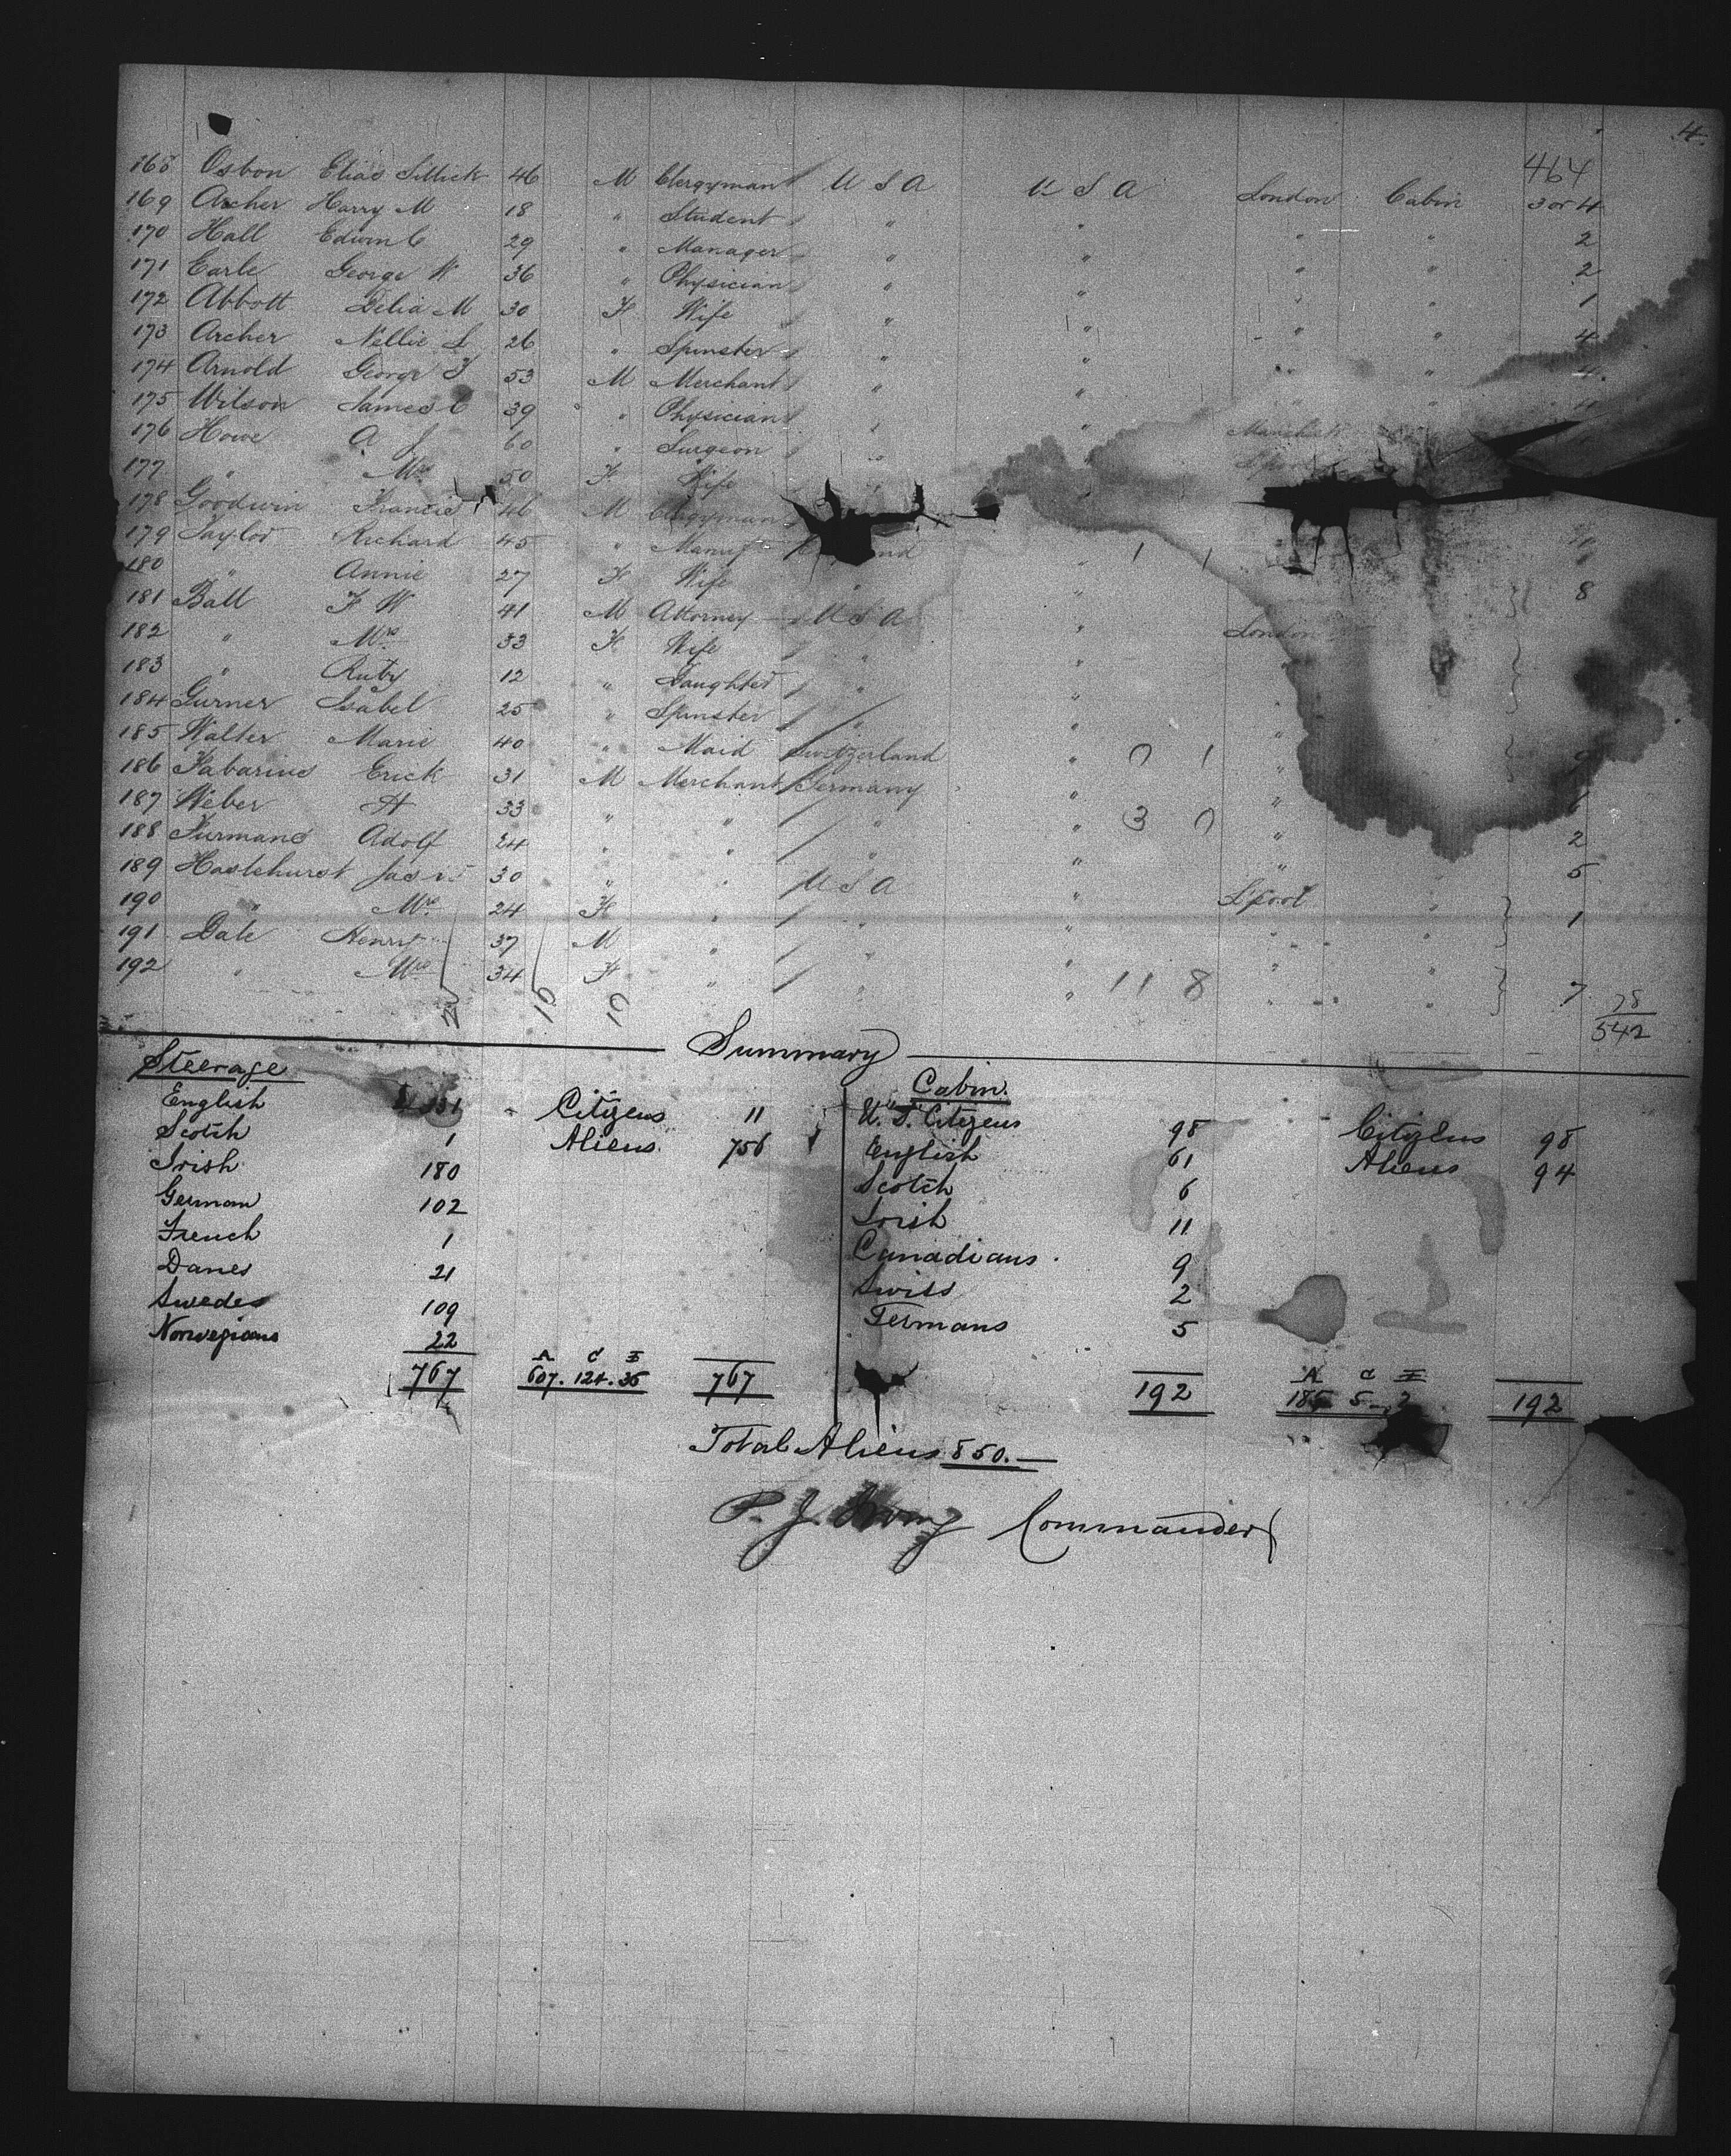 4.
464
168 Osbon Elias Sillick 46 M Clergyman U S A U S A London Cabin 3 or 4
169 Archer Harry M 18 " Student " " " " 2
170 Hall Edwin C 29 " Manager " " " " 2
171 Earle George W 36 " Physician " " " " 1
172 Abbott Delia M 30 F Wife " " " " 4
173 Archer Nellie L 26 " Spinster " " " " 4
174 Arnold George F 53 M Merchant " " " "
175 Wilson James C 39 " Physician " "
176 Howe A J 60 " Surgeon " "
177 " Mrs 50 F Wife "
178 Goodwin Francis 46 M Clergyman
179 Taylor Richard 45 " Manuf " 1 1
180 " Annie 27 F Wife " " 8
181 Ball F W 41 M Attorney U S A " London
182 " Mrs 33 F Wife " " "
183 " Ruby 12 " Daughter " " "
184 Gurner Isabel 25 " Spinster " " "
185 Walter Marie 40 " Maid Switzerland " 0 1 "
186 Fabarius Erick 31 M Merchant Germany " "
187 Weber A 33 " " " " 3 0 " 2
188 Furmans Adolf 24 " " " " " " 5
189 Haslehurst Jas 30 " " U S A " L'pool "
190 " Mrs 24 F " " " " " 1
191 Dale Henry 37 M " " " " "
192 " Mrs 34 F " " " 11 8 " " 7
78
542
10 10
Summary
Steerage Cabin.
English 331 Citizens 11 U.S. Citizens 98 Citizens 98
Scotch 1 Aliens 756 English 61 Aliens 94
Irish 180 Scotch 6
German 102 Irish 11
French 1 Canadians 9
Danes 21 Swiss 2
Swedes 109 Germans 5
Norwegians 22
A C I A C I
767 607. 124. 36 767 192 185 5 2 192
Total Aliens 850.—
P. J. Irving Commander